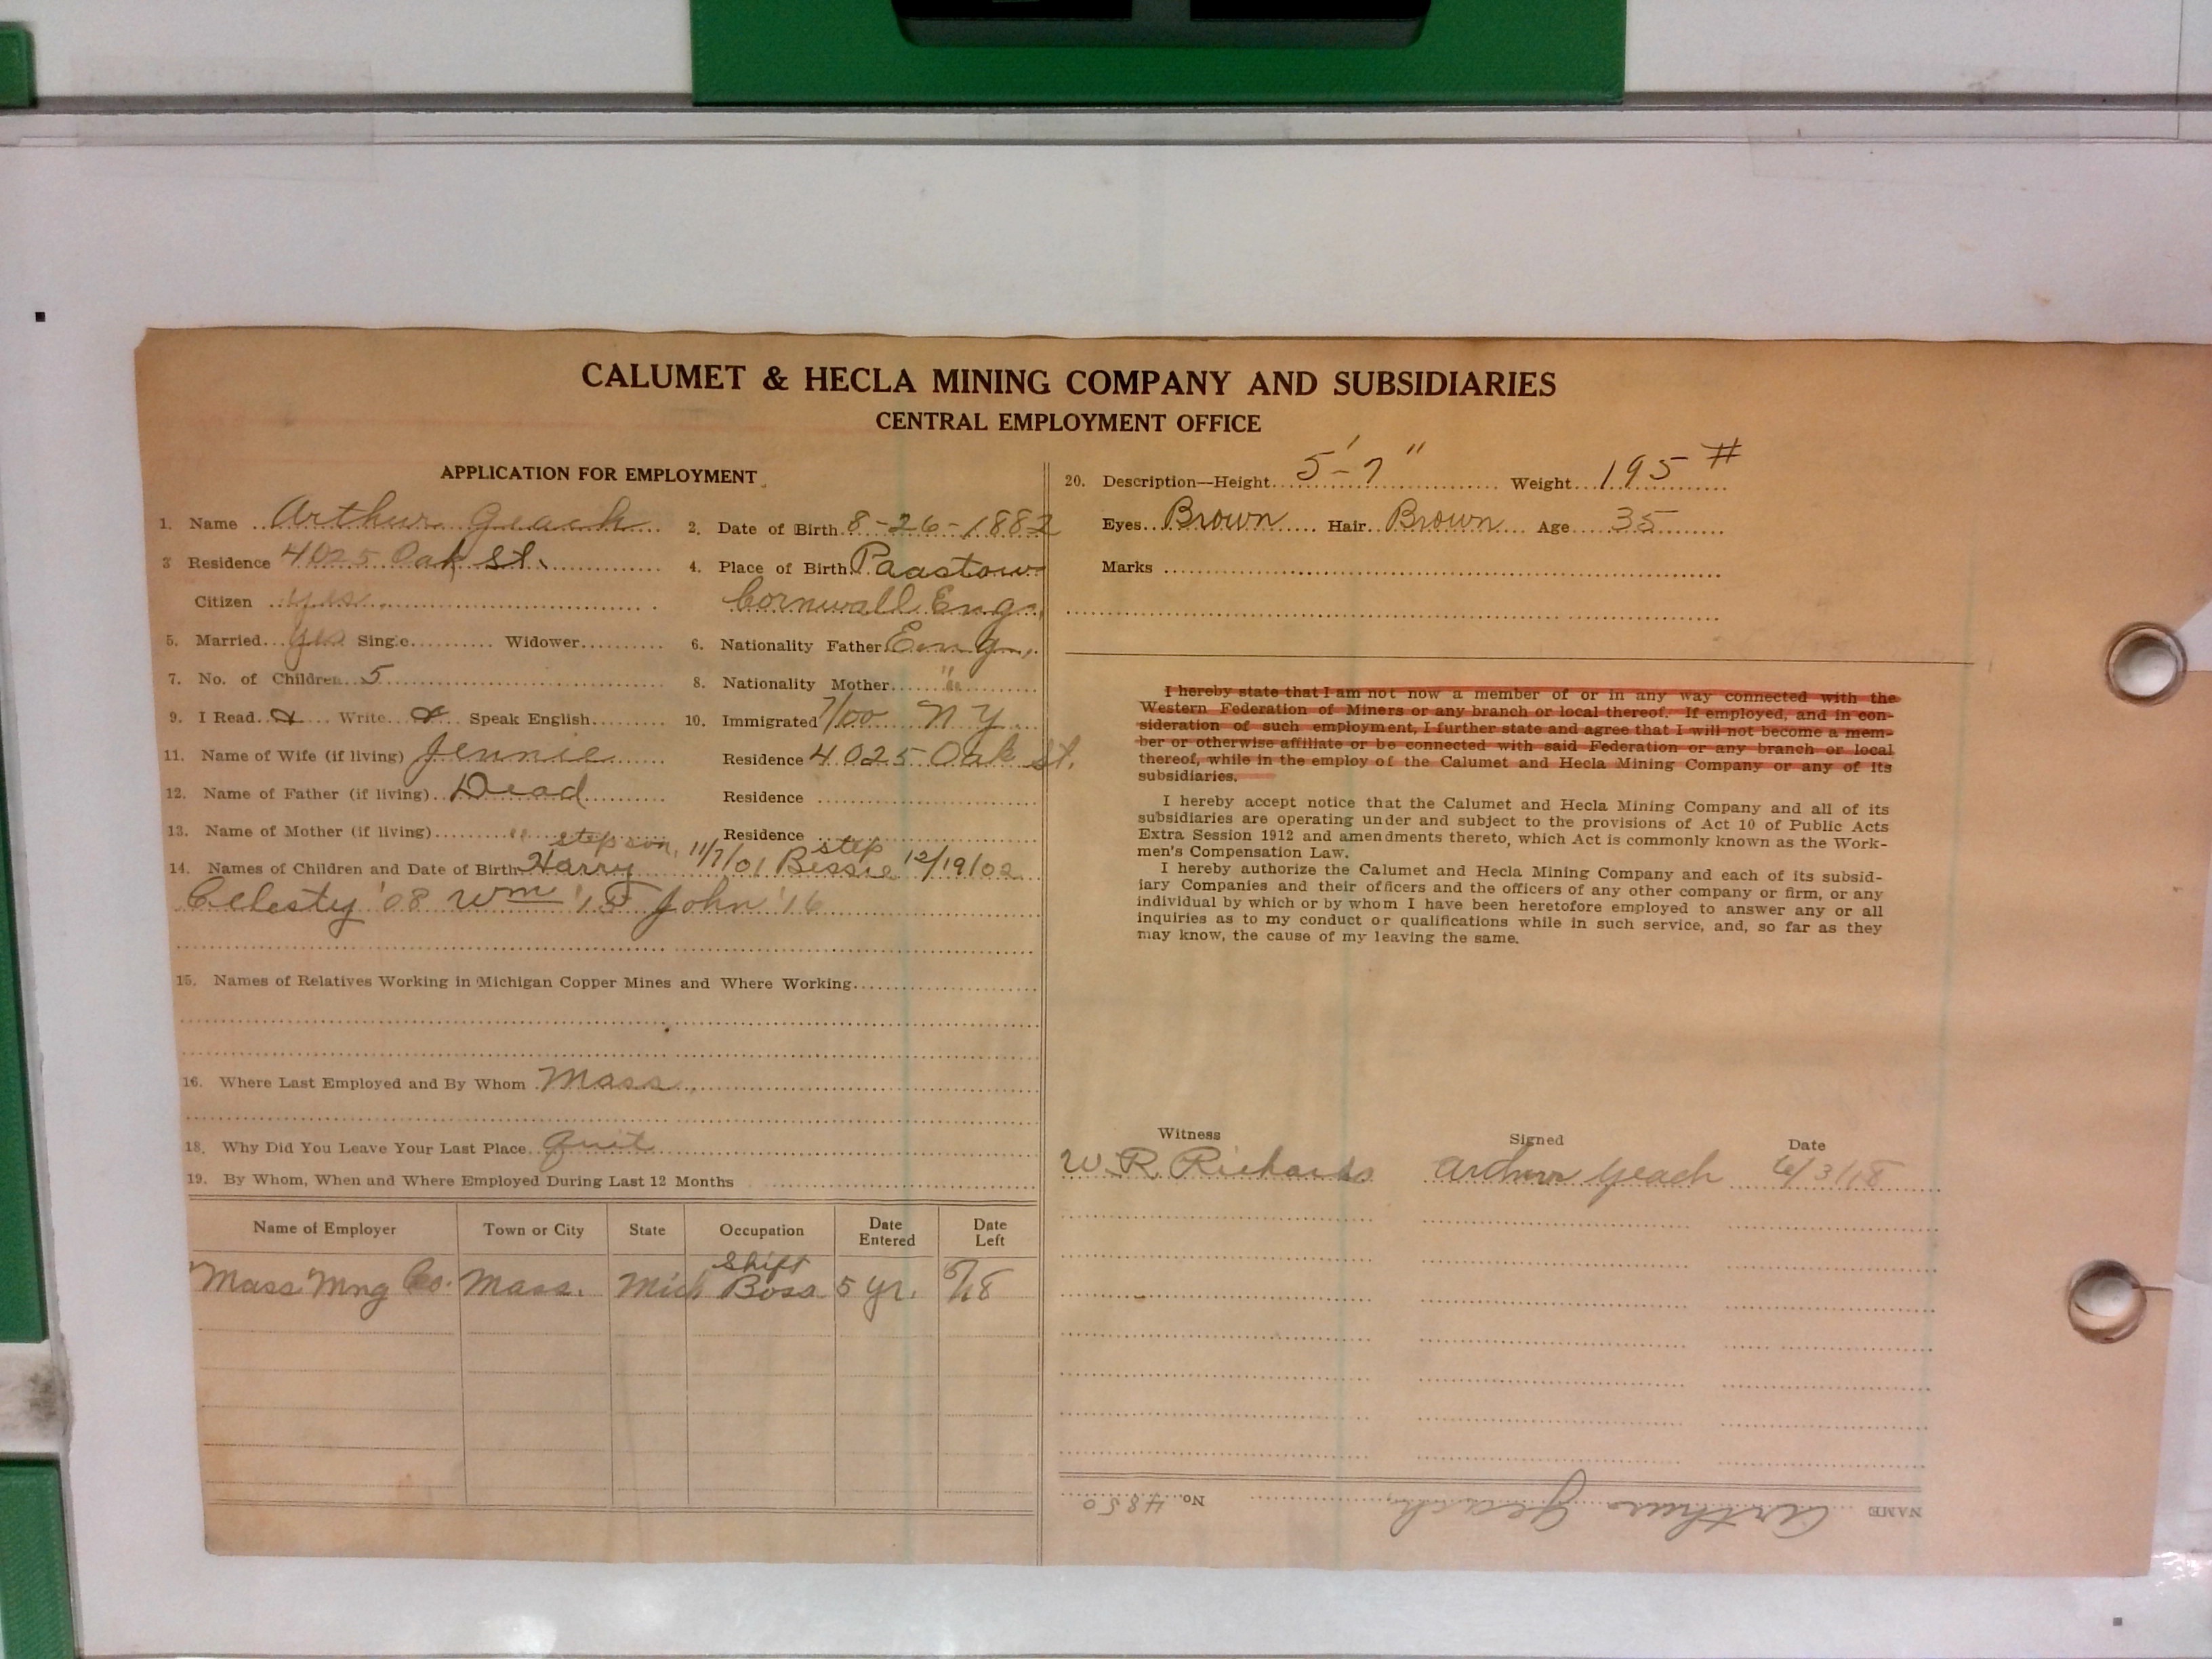 CALUMET & HECLA MINING COMPANY AND SUBSIDIARIES
CENTRAL EMPLOYMENT OFFICE
APPLICATION FOR EMPLOYMENT
1. Name Arthur Geach 2. Date of Birth 8-26-1882
3 Residence 4025 Oak St. 4. Place of Birth Paastow
Citizen yes Cornwall Eng.
5. Married yes Single Widower 6. Nationality Father Eng.
7. No. of Children 5 8. Nationality Mother "
9. I Read Write Speak English 10. Immigrated 7/00 N Y
11. Name of Wife (if living) Jennie Residence 4025 Oak St.
12. Name of Father (if living) Dead Residence
13. Name of Mother (if living) " Residence
step son, step
14. Names of Children and Date of Birth Harry 11/7/01 Bessie 12/19/02
Celesty '08 Wm '15 John '16
15. Names of Relatives Working in Michigan Copper Mines and Where Working
16. Where Last Employed and By Whom Mass
18. Why Did You Leave Your Last Place Quit
19. By Whom, When and Where Employed During Last 12 Months
Name of Employer Town or City State Occupation Date Entered Date Left
Shift
Mass Mng Co. Mass. Mich Boss 5 yr. /18
20. Description—Height 5'-7" Weight 195 #
Eyes Brown Hair Brown Age 35
Marks
I hereby state that I am not now a member of or in any way connected with the
Western Federation of Miners or any branch or local thereof. If employed, and in con-
sideration of such employment, I further state and agree that I will not become a mem-
ber or otherwise affiliate or be connected with said Federation or any branch or local
thereof, while in the employ of the Calumet and Hecla Mining Company or any of its
subsidiaries.
I hereby accept notice that the Calumet and Hecla Mining Company and all of its
subsidiaries are operating under and subject to the provisions of Act 10 of Public Acts
Extra Session 1912 and amendments thereto, which Act is commonly known as the Work-
men's Compensation Law.
I hereby authorize the Calumet and Hecla Mining Company and each of its subsid-
iary Companies and their officers and the officers of any other company or firm, or any
individual by which or by whom I have been heretofore employed to answer any or all
inquiries as to my conduct or qualifications while in such service, and, so far as they
may know, the cause of my leaving the same.
Witness Signed Date
W. R. Richards Arthur Geach 6/3/18
NAME Arthur Geach No. 4850